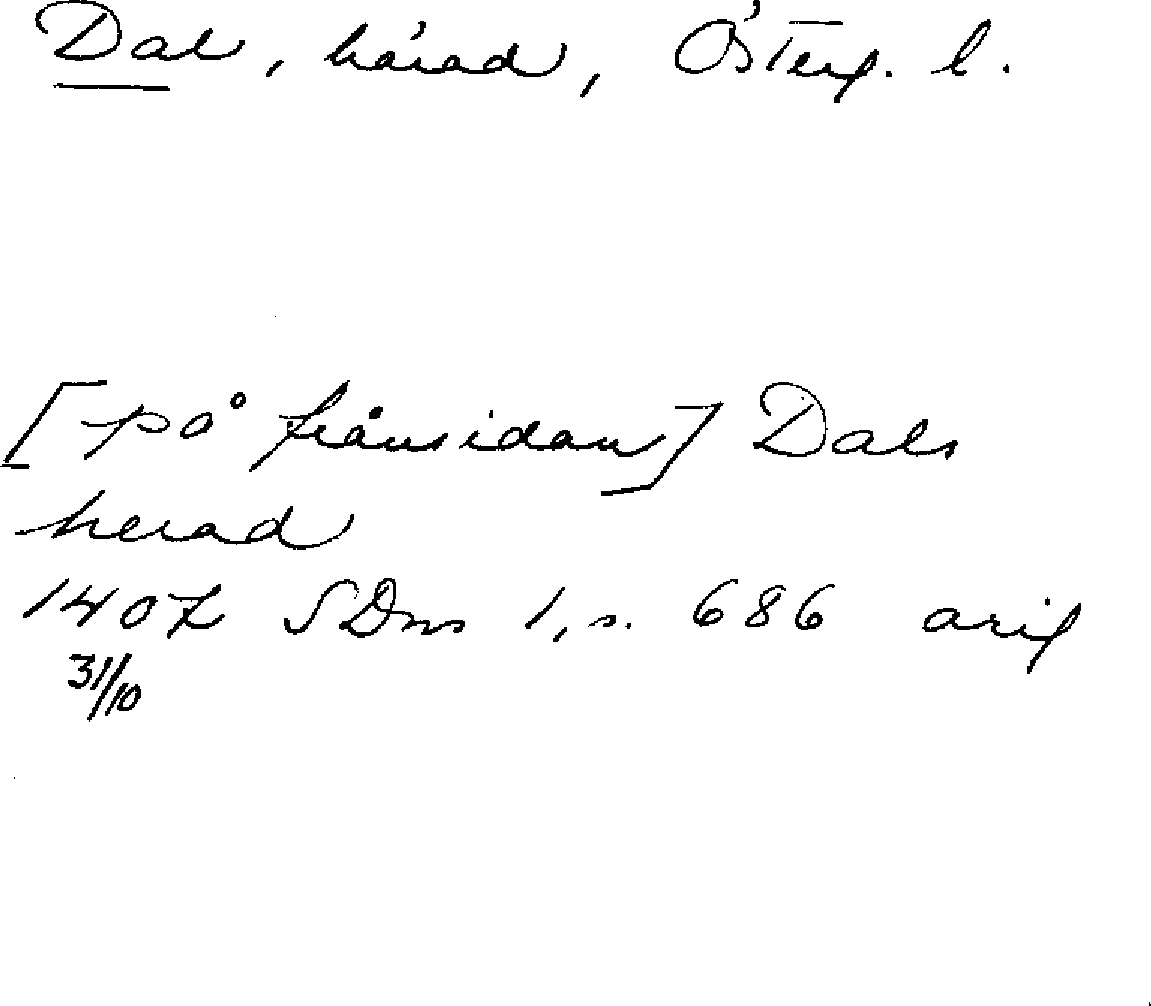 Dal, härad, Österg. l.
[på frånsidan] Dals
herad
1407 SDns 1, s. 686 orig
31/10